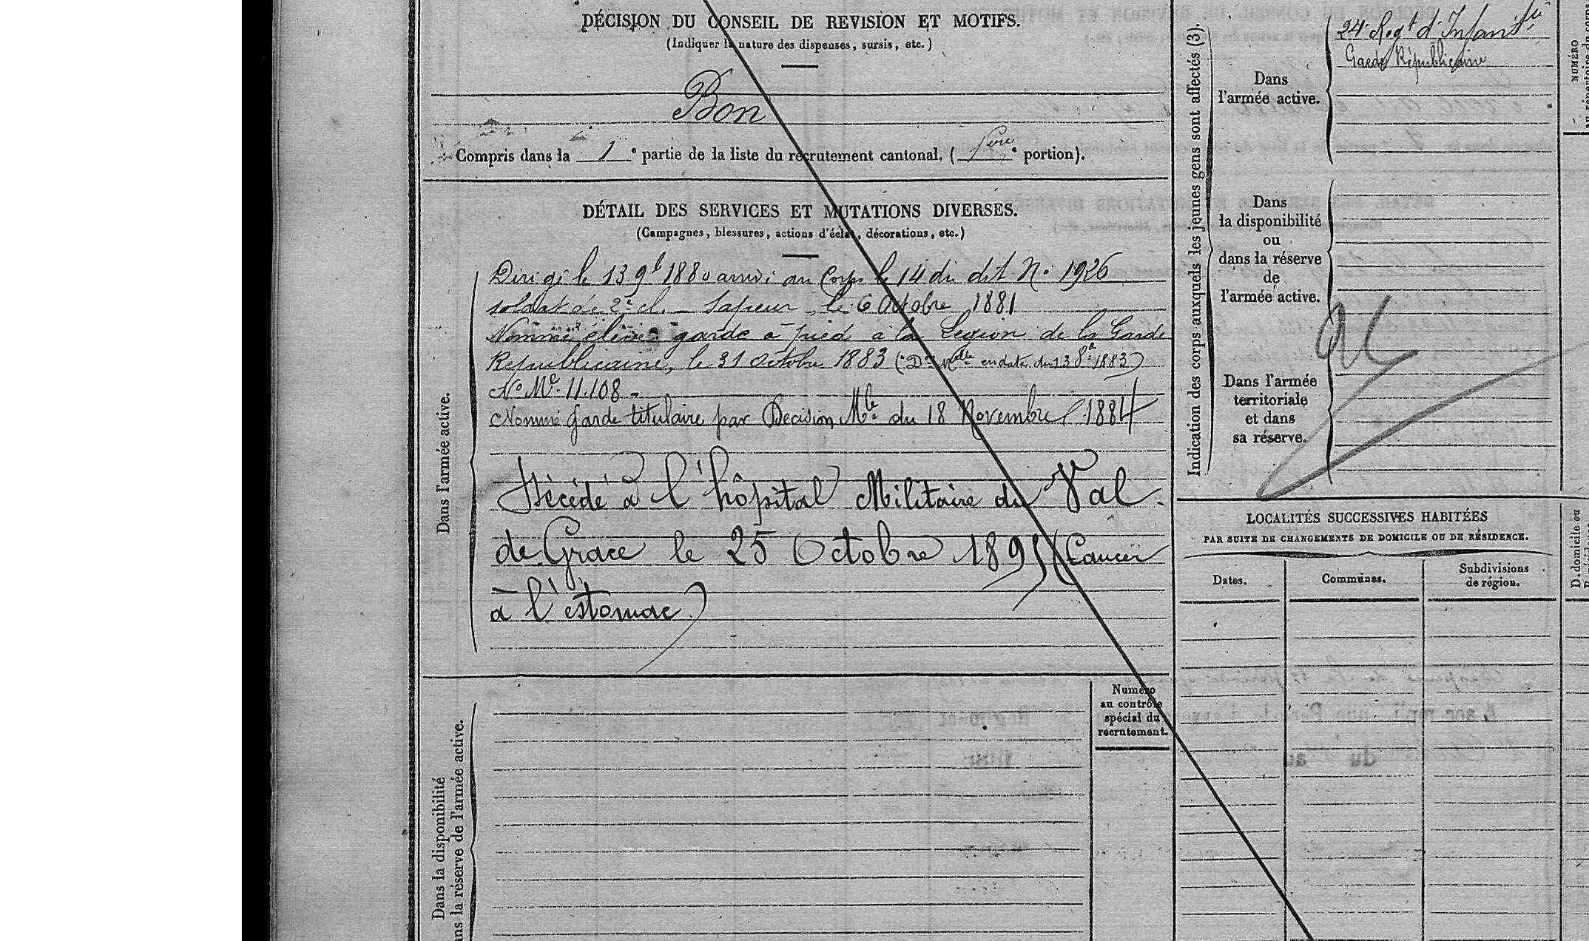 DÉCISION DU CONSEIL DE REVISION ET MOTIFS.
(Indiquer la nature des dispenses, sursis, etc.)
Bon
Compris dans la 1e partie de la liste du recrutement cantonal, (1ere portion).
DÉTAIL DES SERVICES ET MUTATIONS DIVERSES.
(Campagnes, blessures, actions d'éclat, décorations, etc.)
Dans l'armée active.
Dirigé le 13 9b 1880 arrivé au Corps le 14 du dit No 1926
soldat de 2e cl. Sapeur le 6 Octobre 1881
Nommé élève garde à pied à la Légion de la Garde
Républicaine, le 31 octobre 1883 (Don Mlle en date du 13 8b 1883)
No Mle 11.108
Nommé Garde titulaire par Décision Mle du 18 Novembre 1884
Décédé à l'hôpital Militaire du Val
de Grace le 25 Octobre 1895 (Cancer
à l'estomac)
Dans la disponibilité
la réserve de l'armée active.
Numéro
au contrôle
spécial du
recrutement.
Indication des corps auxquels les jeunes gens sont affectés (3).
Dans
l'armée active.
24 Regt d'Infantie
Garde Républicaine
Dans
la disponibilité
ou
dans la réserve
de
l'armée active.
Dans l'armée
territoriale
et dans
sa réserve.
LOCALITÉS SUCCESSIVES HABITÉES
PAR SUITE DE CHANGEMENTS DE DOMICILE OU DE RÉSIDENCE.
Dates.
Communes.
Subdivisions
de région.
NUMÉRO
D. domicile ou